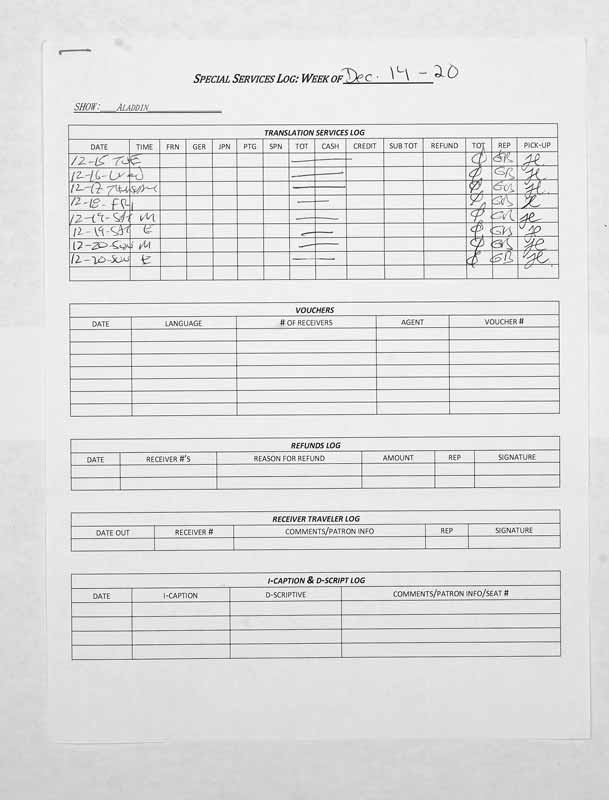 SPECIAL SERVICES LOG: WEEK OF Dec. 14 - 20
SHOW: ALADDIN
TRANSLATION SERVICES LOG
DATE TIME FRN GER JPN PTG SPN TOT CASH CREDIT SUB TOT REFUND TOT REP PICK-UP
12-15 TUE ∅ GB H.
12-16 Wed ∅ GB H.
12-17 ∅ GB H.
12-18- FRI ∅ GB H
12-19-SAT M ∅ GB H
12-19-SAT E ∅ GB H
12-20-SUN M ∅ GB H
12-20-SUN E ∅ GB H.
VOUCHERS
DATE LANGUAGE # OF RECEIVERS AGENT VOUCHER #
REFUNDS LOG
DATE RECEIVER #'S REASON FOR REFUND AMOUNT REP SIGNATURE
RECEIVER TRAVELER LOG
DATE OUT RECEIVER # COMMENTS/PATRON INFO REP SIGNATURE
I-CAPTION & D-SCRIPT LOG
DATE I-CAPTION D-SCRIPTIVE COMMENTS/PATRON INFO/SEAT #